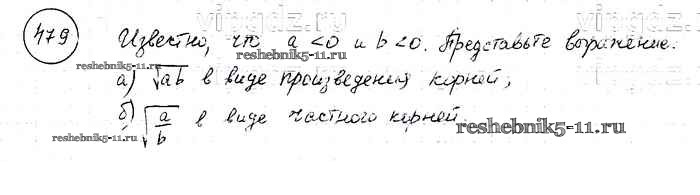 vingdz.ru
479 Известно, что a < 0 и b < 0. Представьте выражение:
reshebnik5-11.ru
а) √ab в виде произведения корней;
reshebnik5-11.ru
б) √a/b в виде частного корней.
reshebnik5-11.ru
reshebnik5-11.ru